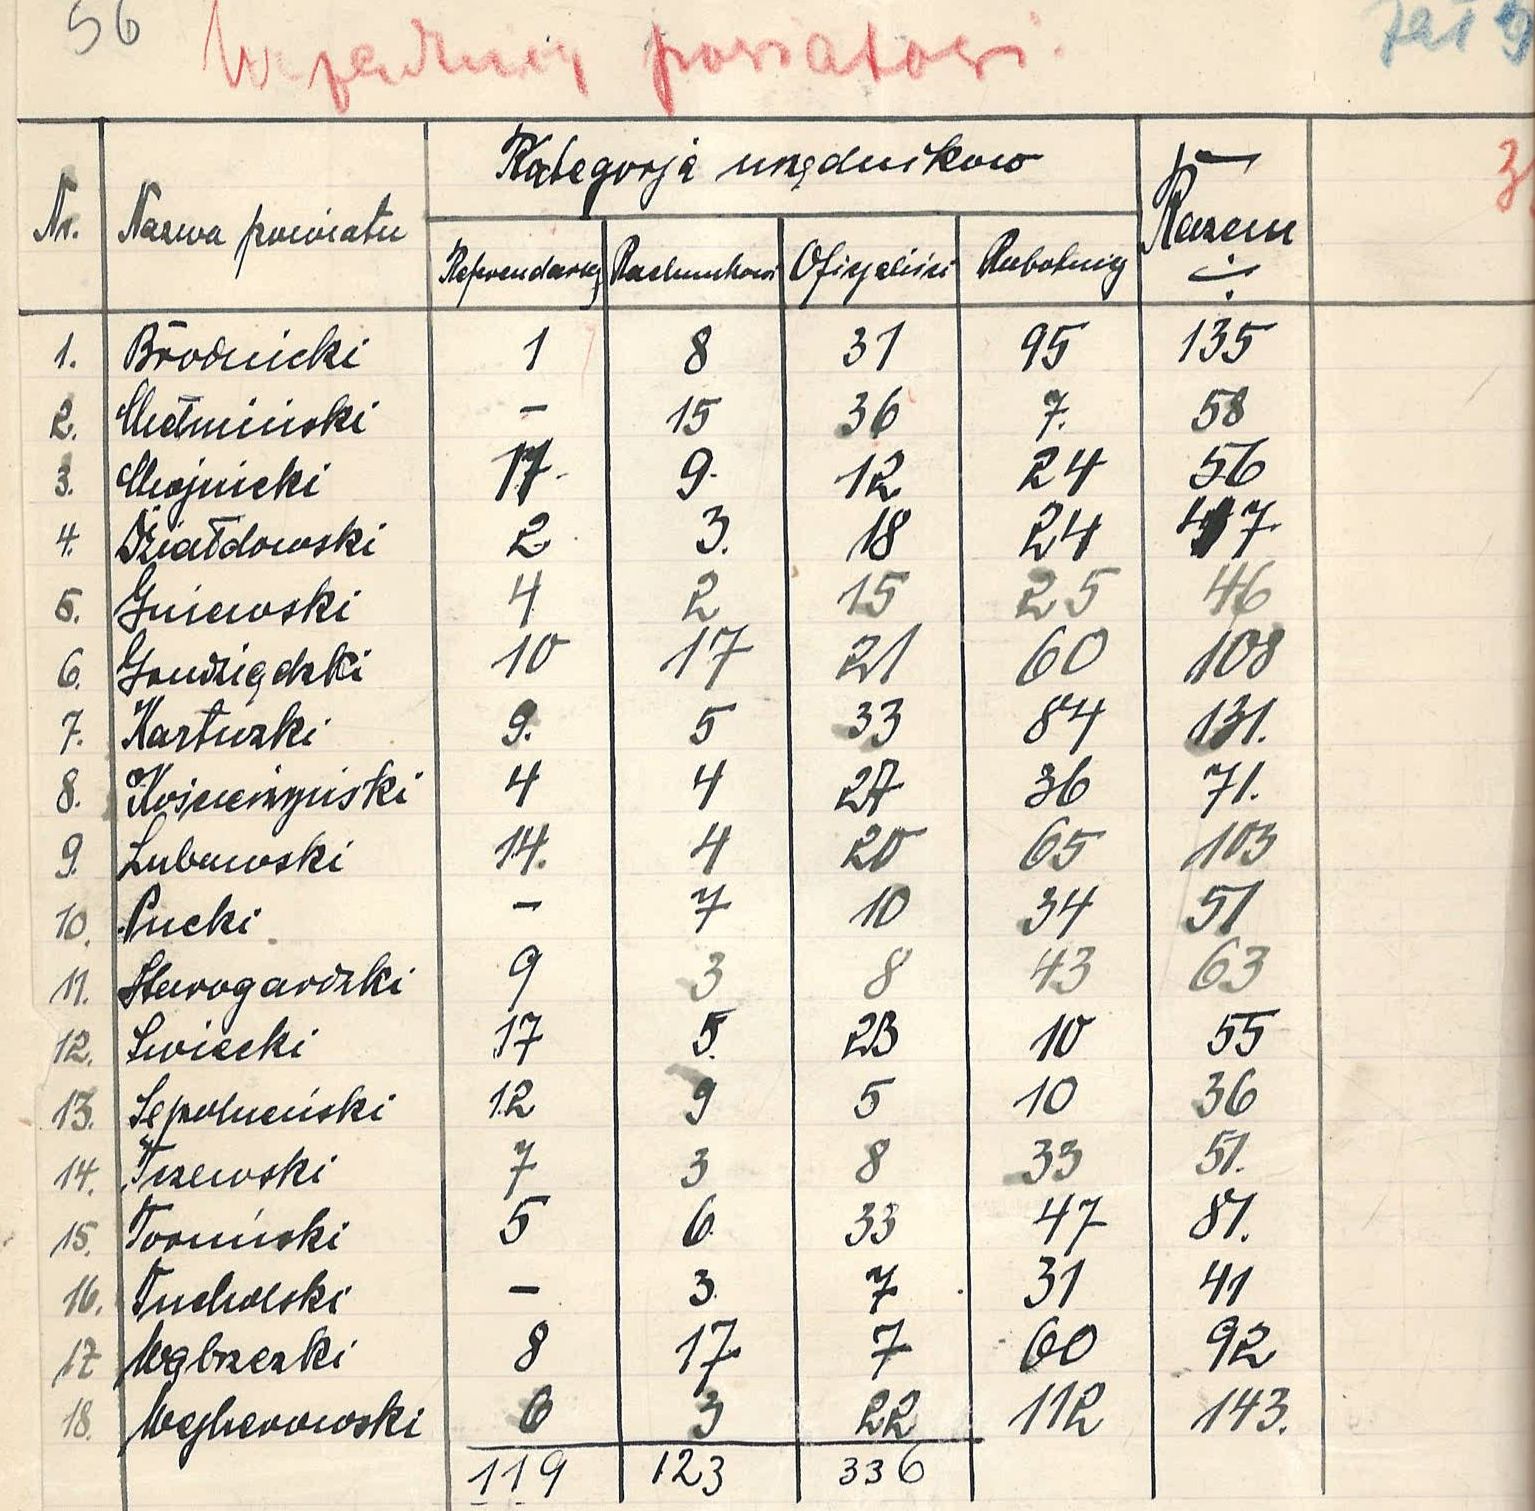 56
Urzędnicy powiatowi.
Kategorja urzędnikow
Nr. Nazwa powiatu Razem
Referendarzy Rachunkowi Oficjaliści Robotnicy
1. Brodnicki 1 8 31 95 135
2. Chełmiński – 15 36 7. 58
3. Chojnicki 17. 9. 12 24 56
4. Działdowski 2. 3. 18 24 47
5. Gniewski 4 2 15 25 46
6. Grudziądzki 10 17 21 60 108
7. Kartuzki 9. 5 33 84 131.
8. Kościerzyński 4 4 27 36 71.
9. Lubawski 14. 4 20 65 103
10. Pucki – 7 10 34 51
11. Starogardzki 9 3 8 43 63
12. Swiecki 17 5. 23 10 55
13. Sępoleński 12 9 5 10 36
14. Tczewski 7 3 8 33 51.
15. Toruński 5 6. 33 47 81.
16. Tucholski – 3. 7 31 41
17 Wąbrzezki 8 17 7 60 92
18. Wejherowski 6 3 22 112 143.
119 123 336